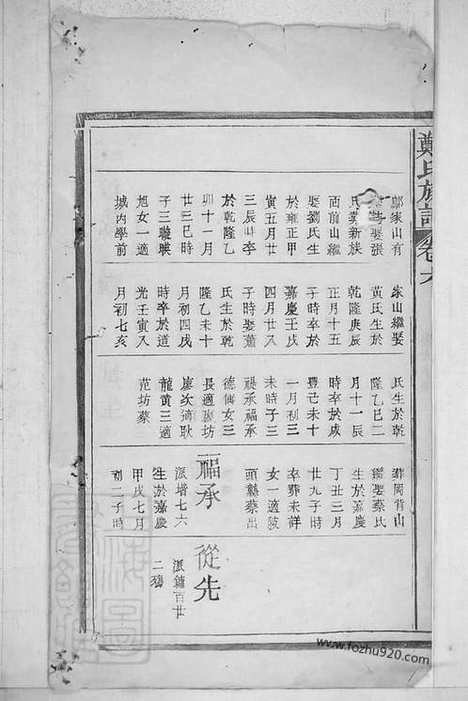 鄭氏族譜 卷六
鄔家山有
娶張
氏葬新族
面前山繼
娶劉氏生
於雍正甲
寅五月廿
三辰時卒
於乾隆乙
卯十一月
廿三巳時
子三璇暎
旭女一適
城內學前
家山繼娶
黃氏生於
乾隆庚辰
正月十五
子時卒於
嘉慶壬戌
四月廿又
子時娶董
氏生於乾
隆乙未十
月初四戌
時卒於道
光壬寅又
月初七亥
氏生於乾
隆乙巳二
月十一辰
時卒於咸
豐己未十
一月初三
未時子三
福承福承
德仙女三
長適磡坊
廖次適耿
龍黃三適
范坊蔡
葬岡背山
繼娶蔡氏
生於嘉慶
丁丑三月
廿九子時
卒葬未詳
女一適陂
頭縣蔡出
福承
派增七六
生於嘉慶
甲戌七月
初二子時
從先
派鏞百廿
二殤
www.fozhu920.com